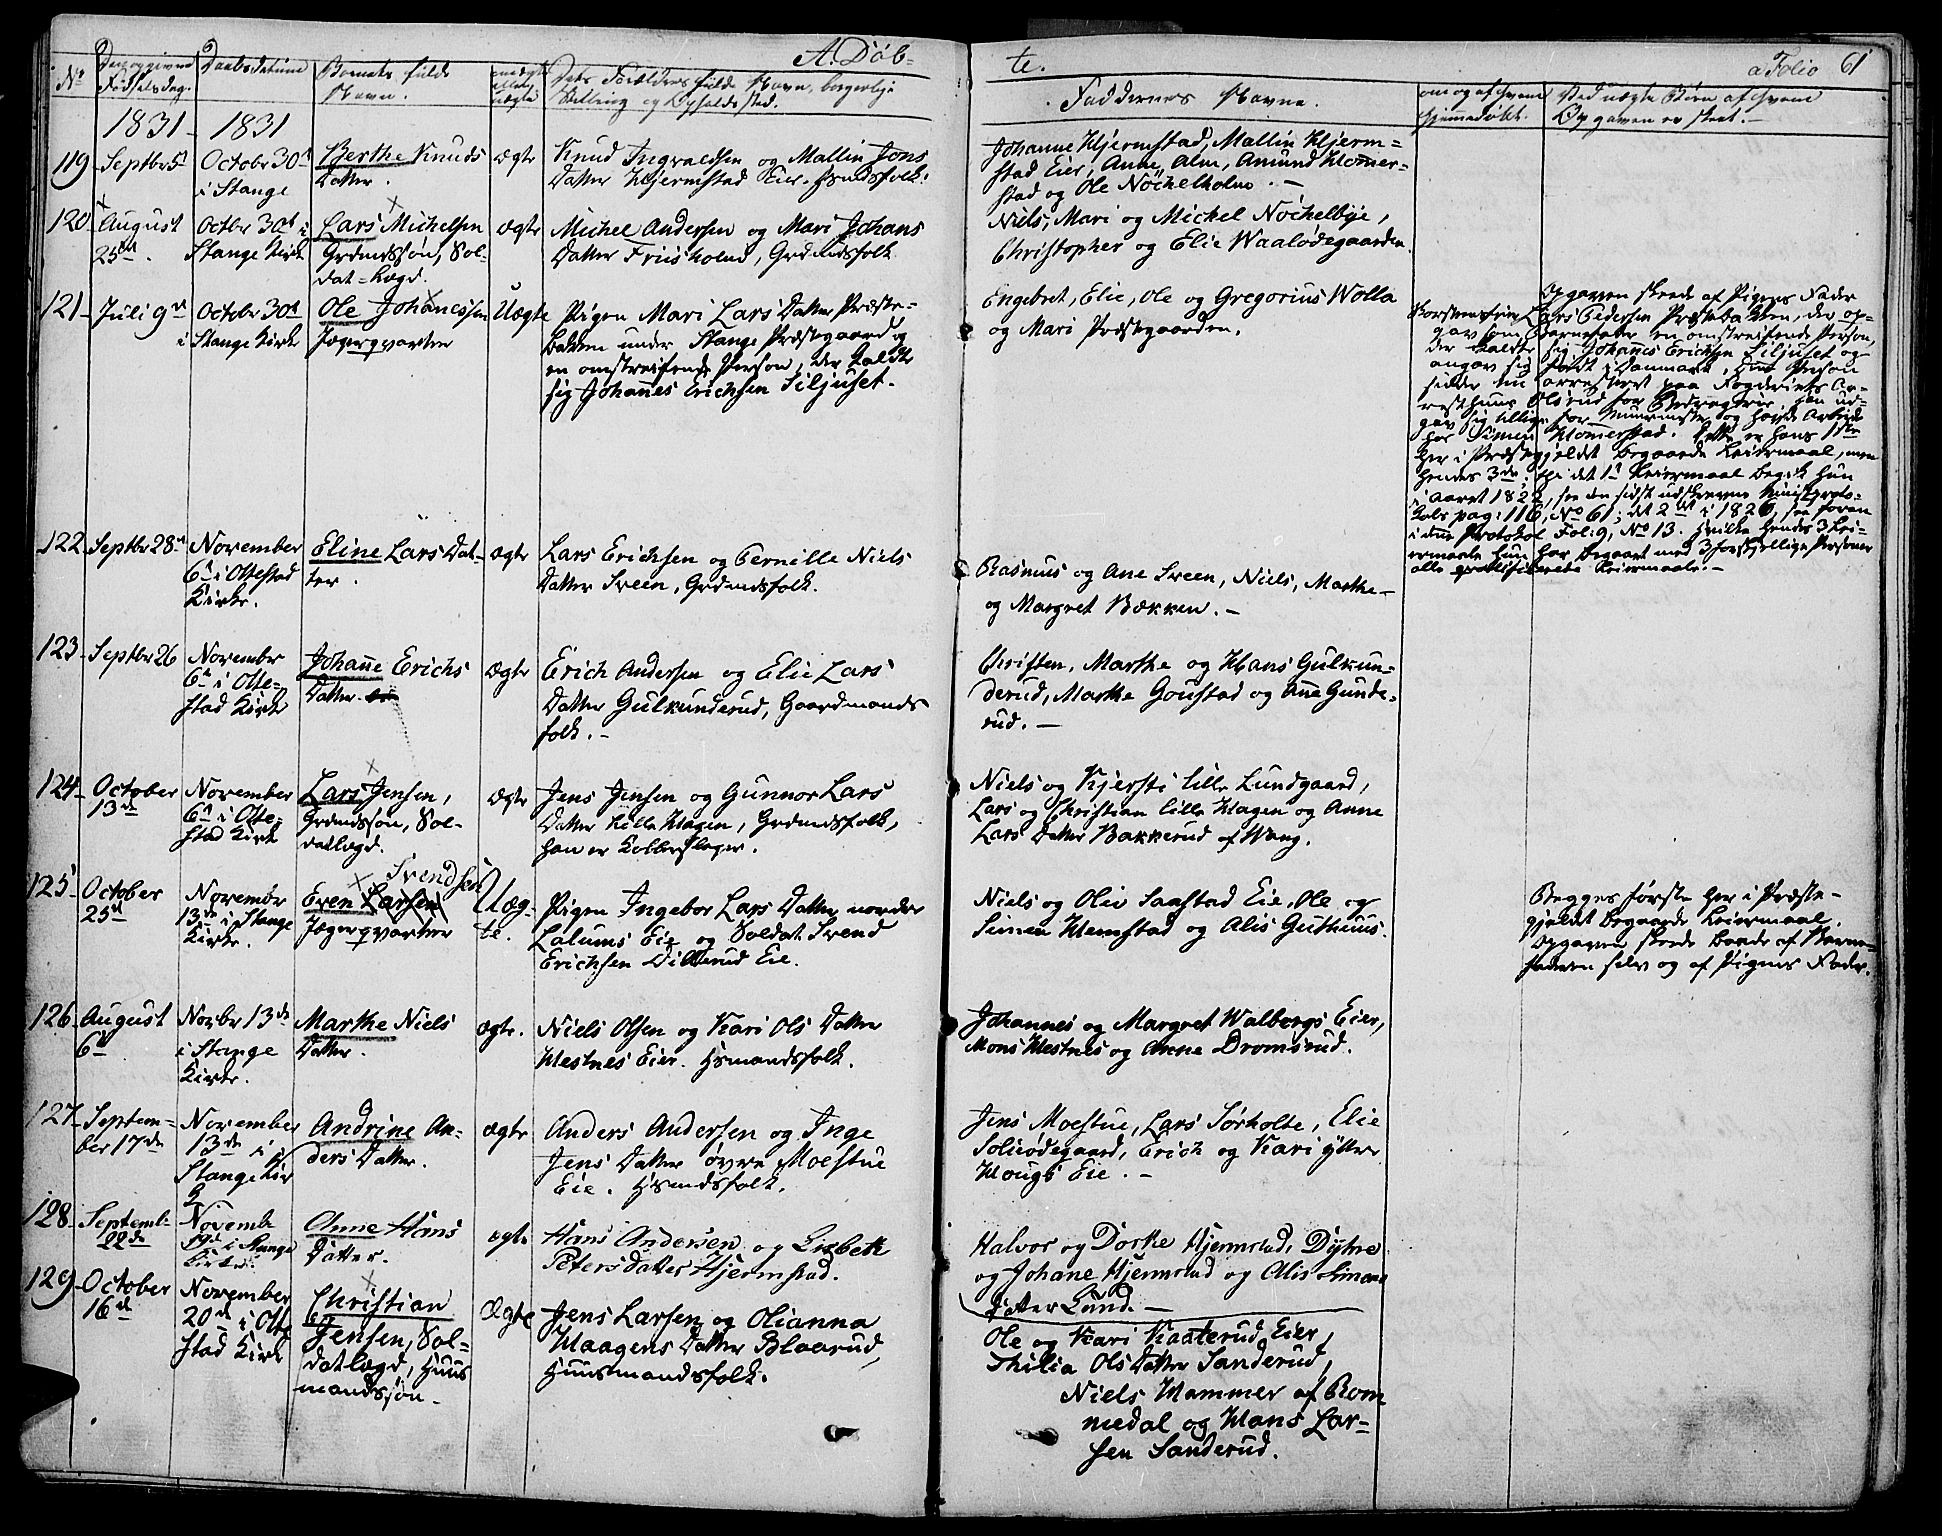 A. Døb-
te.
a Folio 61
No
Fødselsdag.
Daabsdatum
Barnets fulde
Navn.
ægte
eller
uægte
Dets Forældres fulde Navn, borgerlige
Stilling og Opholdssted.
Faddernes Navne.
om og af hvem
hjemmedøbt.
Ved uægte Børn af hvem
Opgaven er skeet.-
1831 - 1831
119
Septbr 5t
October 30t
i Stange
Berthe Knuds
Datter.
ægte
Knud Ingvaldsen og Mallin Jons
Datter Hjermstad Eier. Hsmdsfolk.
Johanne Hjermstad, Mallin Hjerm=
stad Eier, Anne Alm, Amund Homer-
stad og Ole Nöchelholm. -
120
August
25de.
Octbr 30t i
Stange Kirke
Lars Michelsen
Grdmdssøn, Sol-
dat-Lægd.
ægte
Michel Andersen og Mari Johans
Datter Friisholm, Grdmdsfolk
Niels, Mari og Michel Nöchelbye,
Christopher og Elie Waalødegaarden
121
Juli 9de
October 30t
i Stange Kirke
Ole Johanessen
Jægerqvarteer
Uægte
Pigen Mari Lars Datter Præste-
bakken under Stange Præstegaard og
en omstreifende Person, der kaldte
sig Johanes Erichsen Siljuset.
Engebret, Elie, Ole og Gregorius Wolla
og Mari Præstegaarden.
Opgaven skede af Pigens Fader
Lars Pedersen Præstbakken, der op-
gav som Barnefader en omstreifende Person,
der kaldte sig Johanes Erichsen Siljuset og
angav sig født i Danmark, denne Person
sidder nu arresteret paa Fogderiets Ar-
resthuus Olsrud for Bedragerie. han ud-
gav sig tillige for Muurmester og havde Arbeide
hos Simen Homerstad. Dette er hans 1ste
her i Præstegjeldet begaaede Leiermaal, men
hendes 3de, thi det 1t Leiermaal begik hun
i Aaret 1822, see den sidst udskrevne Ministproto-
kols pag: 116, No 61; det 2det i 1826, see foran
i denne Protokol Fol: 9, No 13. Hvilke hendes 3 Lei-
ermaale hun har begaaet med 3 forskjellige Personer
alle Leiermaale.-
122
Septbr 28de
November
6t i Ottestad
Kirke.
Eline Lars Dat-
ter.
ægte
Lars Erichsen og Pernille Niels
Datter Sveen, Grdmdsfolk.
Rasmus og Ane Sveen, Niels, Marthe
og Margret Bækken. -
123
Septbr 26
November
6t i Otte-
stad Kirke
Johane Erichs
Datter.
ægte
Erich Andersen og Elie Lars
Datter Gulkunderud, Gaardmands
folk. -
Christen, Marthe og Hans Gulkun-
derud, Marthe Goustad og Ane Gunde-
rud. -
124
October
13de
November
6t i Otte-
stad Kirke
Lars Jensen,
Grdmdssøn, Sol-
datlægd.
ægte
Jens Jensen og Gunnor Lars
Datter Lille Hagen, Grdmdsfolk,
han er Kobberslager.
Niels og Kjersti lille Lundgaard,
Lars og Christian lille Hagen og Anne
Lars Datter Bakkerud af Wang.
125
October
25d
November
13de i Stange
Kirke.
Even Larsen Svendsen
Jægerqvarteer
Uæg-
te.
Pigen Ingebor Lars Datter nordre
Lalums Eie og Soldat Svend
Erichsen Dillerud Eie.
Niels og Oliv Saastad Eie, Ole og
Simen Hemstad og Alis Guthuus.
Begges første her i Præste-
gjeldet begaaede Leiermaal.
Opgaven skede baade af Barne-
faderen selv og af Pigens Fader.
126
August
6t
Novbr 13de
i Stange
Kirke.
Marthe Niels
Datter.
ægte.
Niels Olsen og Kari Ols Datter
Westnes Eier. Hsmandsfolk.
Johannes og Margret Walbergs Eier,
Mons Westnes og Anne Dromsrud.
127
Septem-
ber 17de
November
13de i
Stange Kir
Andrine An-
ders Datter.
ægte
Anders Andersen og Inge
Jens Datter øvre Moestue
Eie. Hsmdsfolk.
Jens Moestue, Lars Sørholte, Elie
Solieødegaard, Erich og Kari ytter
Hougs Eie. -
128
Septemb-
22de
Novembe
i Stange
Kirke
Anne Hans
Datter.
ægte
Hans Andersen og Lisbeth
Petersdatter Hjermstad.
Halvor og Dorthe Hjermstad, Dythre
og Johane Hjermstad og Alis Simens
datter Lund. -
129
October
16d
November
20de i Otte
stad Kirke
Christian
Jensen, Sol-
datlægd, Huus
mandssøn.
Ægte
Jens Larsen og Olianna
Haagens Datter Blaarud,
Huusmandsfolk.
Ole og Kari Kaaterud Eier,
Thilia Ols Datter Sanderud,
Niels Hammer af Rom
medal og Hans Lar-
sen Sanderud.